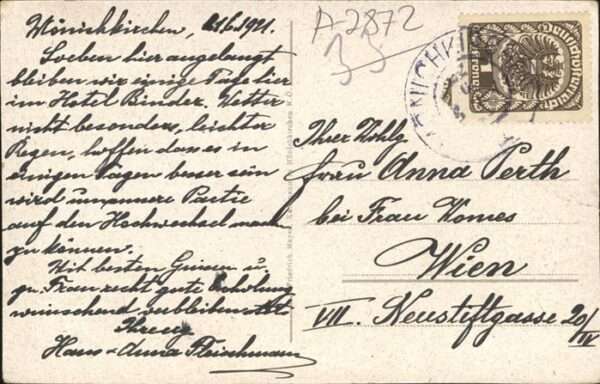 Mönichkirchen, 21.6.1921.
Soeben hier angelangt
bleiben wir einige Tage hier
im Hotel Binder. Wetter
nicht besonders, leichter
Regen, hoffen dass es in
einigen Tagen besser sein
wird um unsere Partie
auf den Hochwechsel machen
zu können.
Mit besten Grüssen u.
gn. Frau recht gute Erholung
wünschend verbleiben stets
Ihre
Hans u. Anna Fleischmann
A-2872
MÖNICHKI
1
Krone
Deutschösterreich
Ihrer Wohlg.
Frau Anna Perth
bei Frau Komes
Wien
VII. Neustiftgasse 20/IV
Mönichkirchen N.Ö.